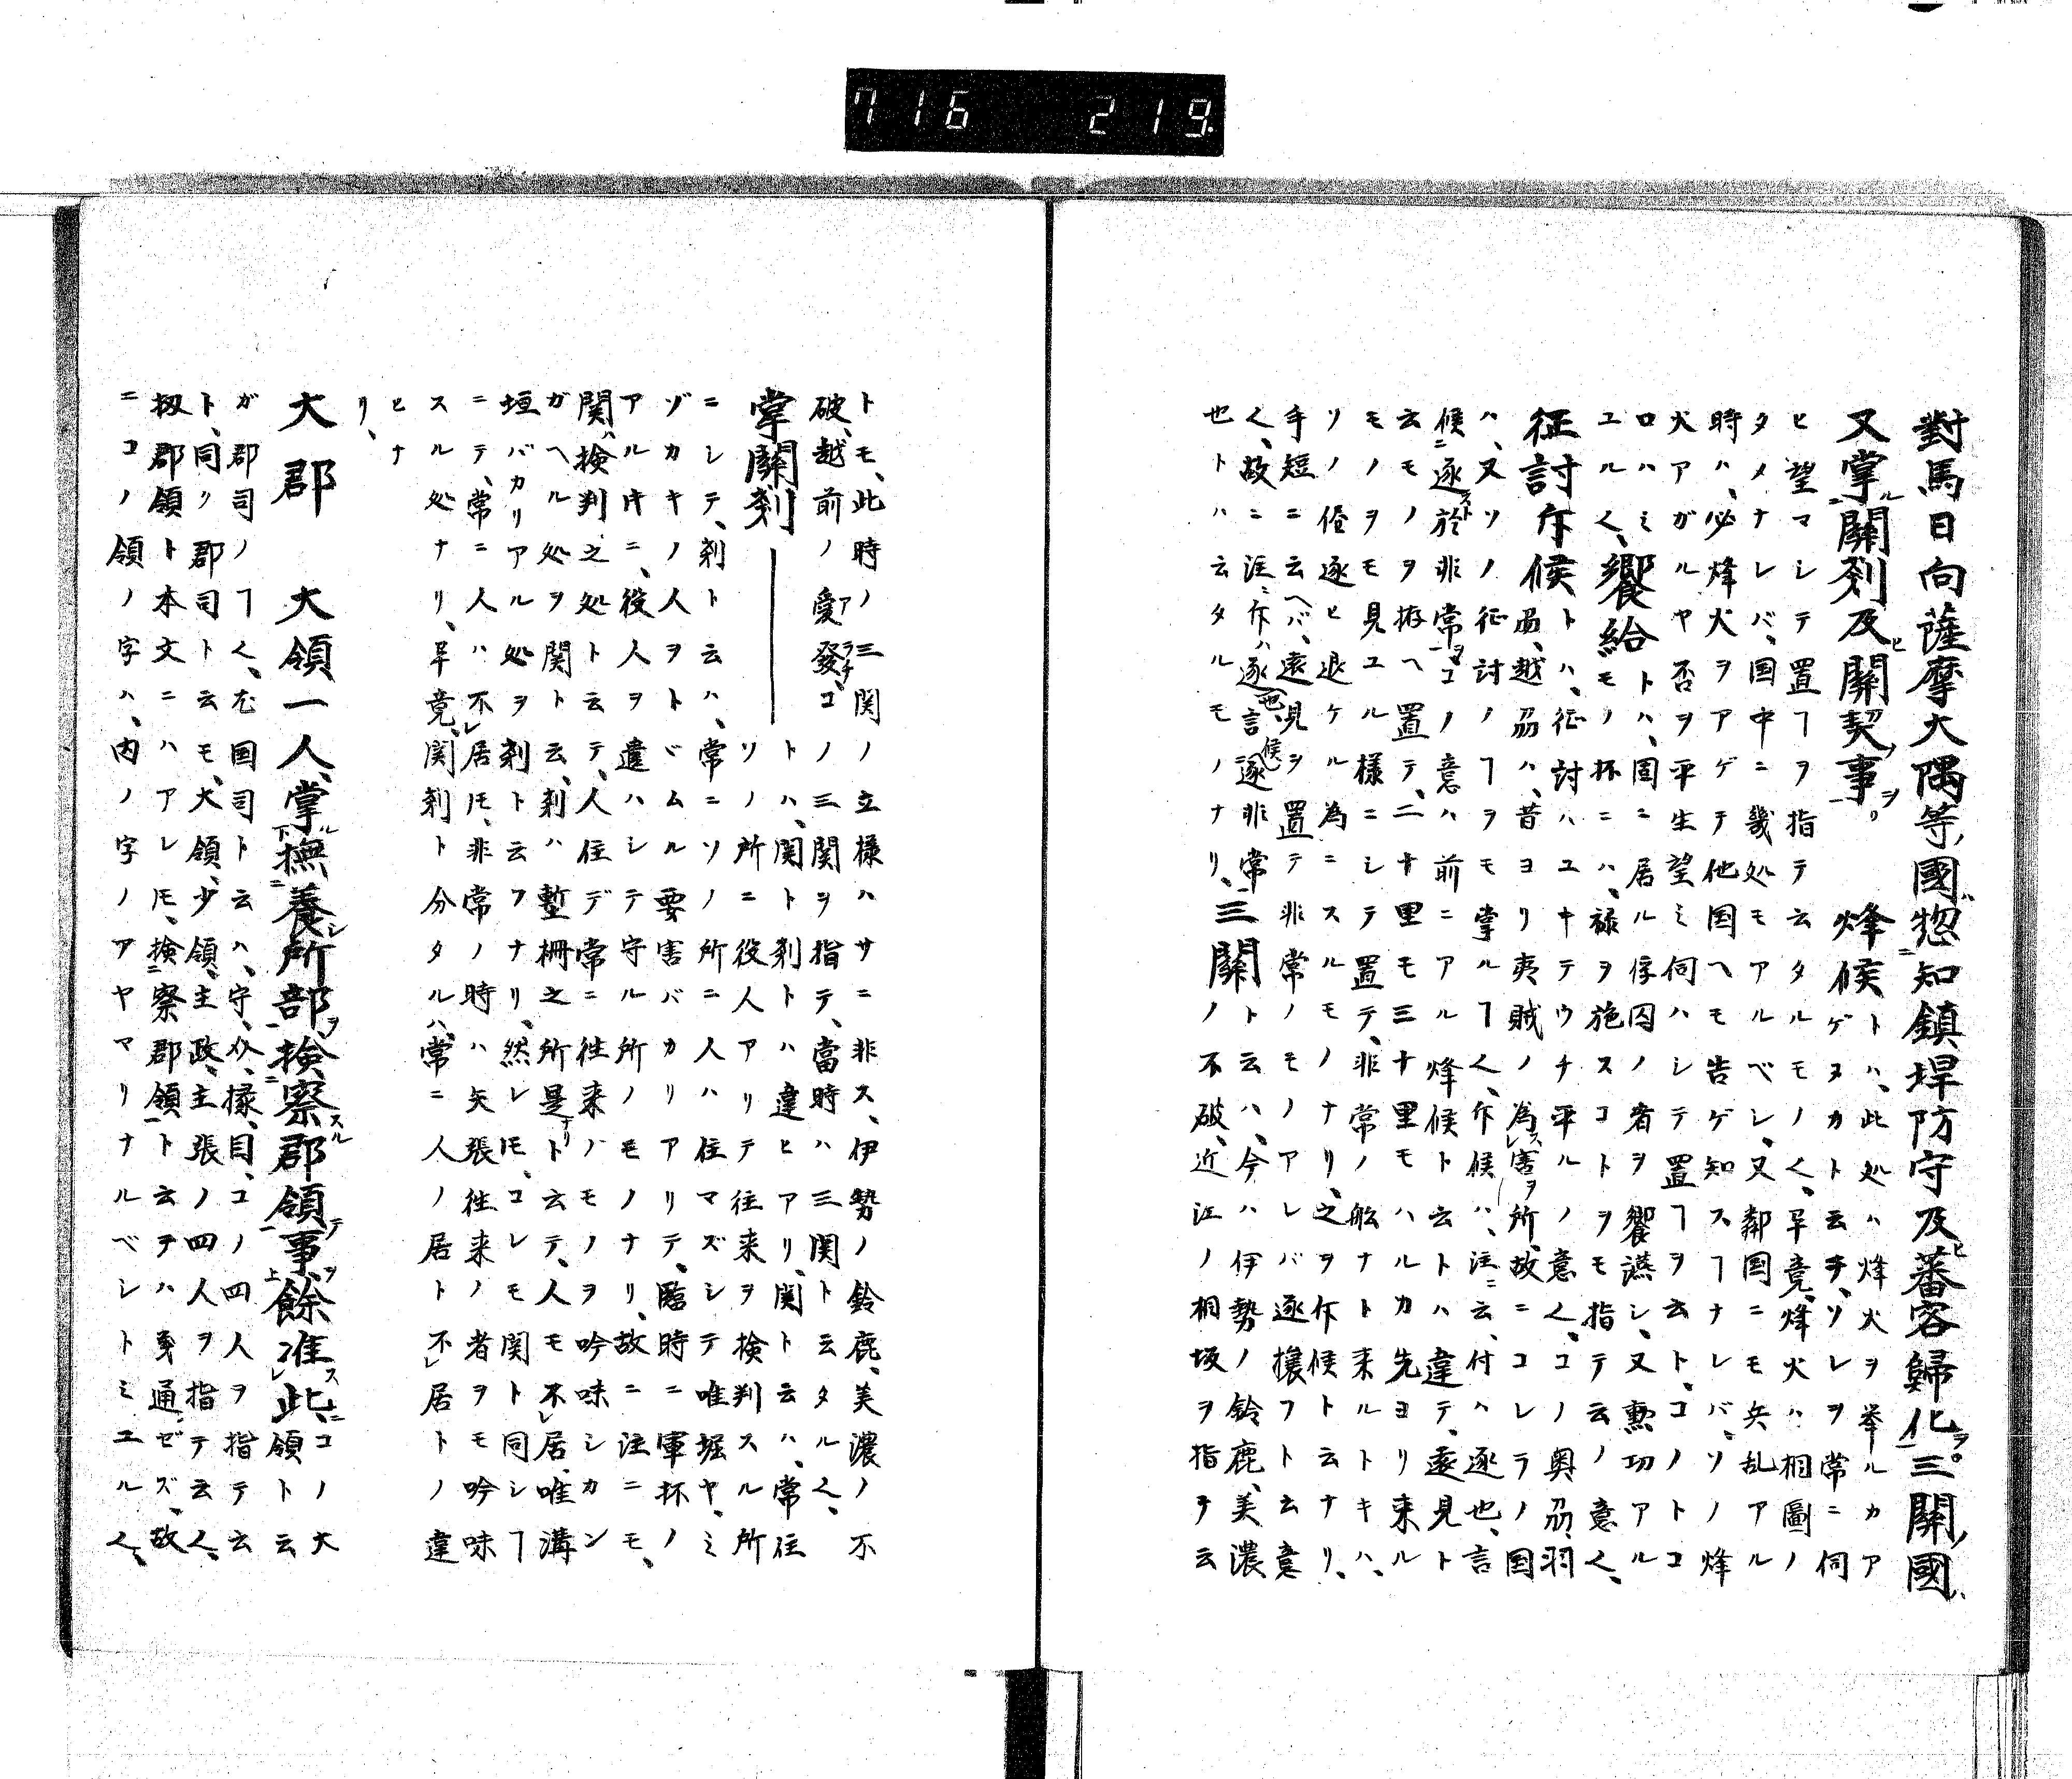 716 219.
對馬日向薩摩大隅等國惣知鎮捍防守及蕃客歸化三關國
又掌關剗及關契事 烽候トハ、此処ハ烽火ヲ举ルカア
ゲヌカト云ヿ、ソレヲ常ニ伺
ヒ望マシテ置ヿヲ指テ云タルモノ〱、畢竟烽火ハ相圖ノ
タメナレバ、国中ニ幾処モアルベシ、又鄰国ニモ兵乱アル
時ハ、必烽火ヲアゲテ他国ヘモ告ゲ知スヿナレバ、ソノ烽
火アガルヤ否ヲ平生望ミ伺ハシテ置ヿヲ云ト、コノトコ
ロハミ 饗給トハ、固ニ居ル俘囚ノ者ヲ饗讌シ、又勲功アル
ユル〱、 モノ杯ニハ、禄ヲ施スコトヲモ指テ云ノ意〱、
征討斥候トハ、征討ハユキテウチ平ルノ意〱、コノ奥刕羽
越刕ハ、昔ヨリ夷賊ノ為害所、故ニコレラノ国
ハ、又ソノ征討ノヿヲモ掌ルヿ〱、斥候ハ、注ニ云、付ハ逐也、言
候逐於非常コノ意ハ前ニアル烽候ト云トハ違テ、遠見ト
云モノヲ拵ヘ置テ、二十里モ三十里モハルカ先ヨリ来ル
モノヲモ見ユル様ニシテ置テ、非常ノ舩ナト来ルトキハ、
ソノ俗逐ヒ退ケル為ニスルモノナリ、之ヲ斥候ト云ナリ、
手短ニ云ヘバ、遠見ヲ置テ非常ノモノアレバ逐攘フト云意
〱、故ニ注ニ斥ハ逐也、言候逐非常 三關ト云ハ、今ハ伊勢ノ鈴鹿、美濃
也トハ云タルモノナリ、 ノ不破、近江ノ相坂ヲ指テ云
トモ、此時ノ三関ノ立様ハサニ非ス、伊勢ノ鈴鹿、美濃ノ不
破、越前ノ愛發、コノ三関ヲ指テ、當時ハ三関ト云タル〱、
掌關剗 トハ、関ト剗トハ違ヒアリ、関ト云ハ、常住
ソノ所ニ役人アリテ往来ヲ検判スル所
ニシテ、剗ト云ハ、常ニソノ所ニ人ハ住マズシテ唯堀ヤ、ミ
ゾカキノ人ヲトドムル要害バカリアリテ、臨時ニ軍杯ノ
アル件ニ、役人ヲ遣ハシテ守ル所ノモノナリ、故ニ注ニモ、
関ハ検判之処ト云テ、人住デ常ニ往来ノモノヲ吟味シカン
ガヘル処ヲ関ト云、剗ハ塹柵之所是ト云テ、人モ不居、唯溝
垣バカリアル処ヲ剗ト云フナリ、然レ𪜈、コレモ関ト同シヿ
ニテ、常ニ人ハ不居𪜈、非常ノ時ハ矢張往来ノ者ヲモ吟味
スル処ナリ、畢竟、関剗ト分タルハ、常ニ人ノ居ト不居トノ違
ヒナ
リ、
大郡 大領一人、掌撫養所部、検察郡領事、餘准此、コノ大
領ト云
ガ郡司ノヿ〱、尤国司ト云ハ、守、介、掾、目、コノ四人ヲ指テ云
ト、同ク郡司ト云モ、大領、少領、主政、主張ノ四人ヲ指テ云〱、
扨郡領ト本文ニハアレ𪜈、検察郡領ト云テハ義通ゼズ、故
ニコノ領ノ字ハ、内ノ字ノアヤマリナルベシトミユル〱、